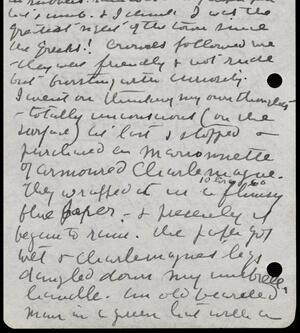 & I was the
greatest sight of the town since
the Greeks! Crowds followed me
– they were friendly & not rude
but bursting with curiosity.
I went on thinking my own thoughts
– totally unconscious (on the
surface) At last I stopped &
purchased a Marionette
of armoured Charlemagne.
They wrapped it in a flimsy
blue paper – & presently it
began to rain. The paper got
wet & Charlemagnes legs
dangled down my umbrella
handle. An old bearded
man in a green hat with a